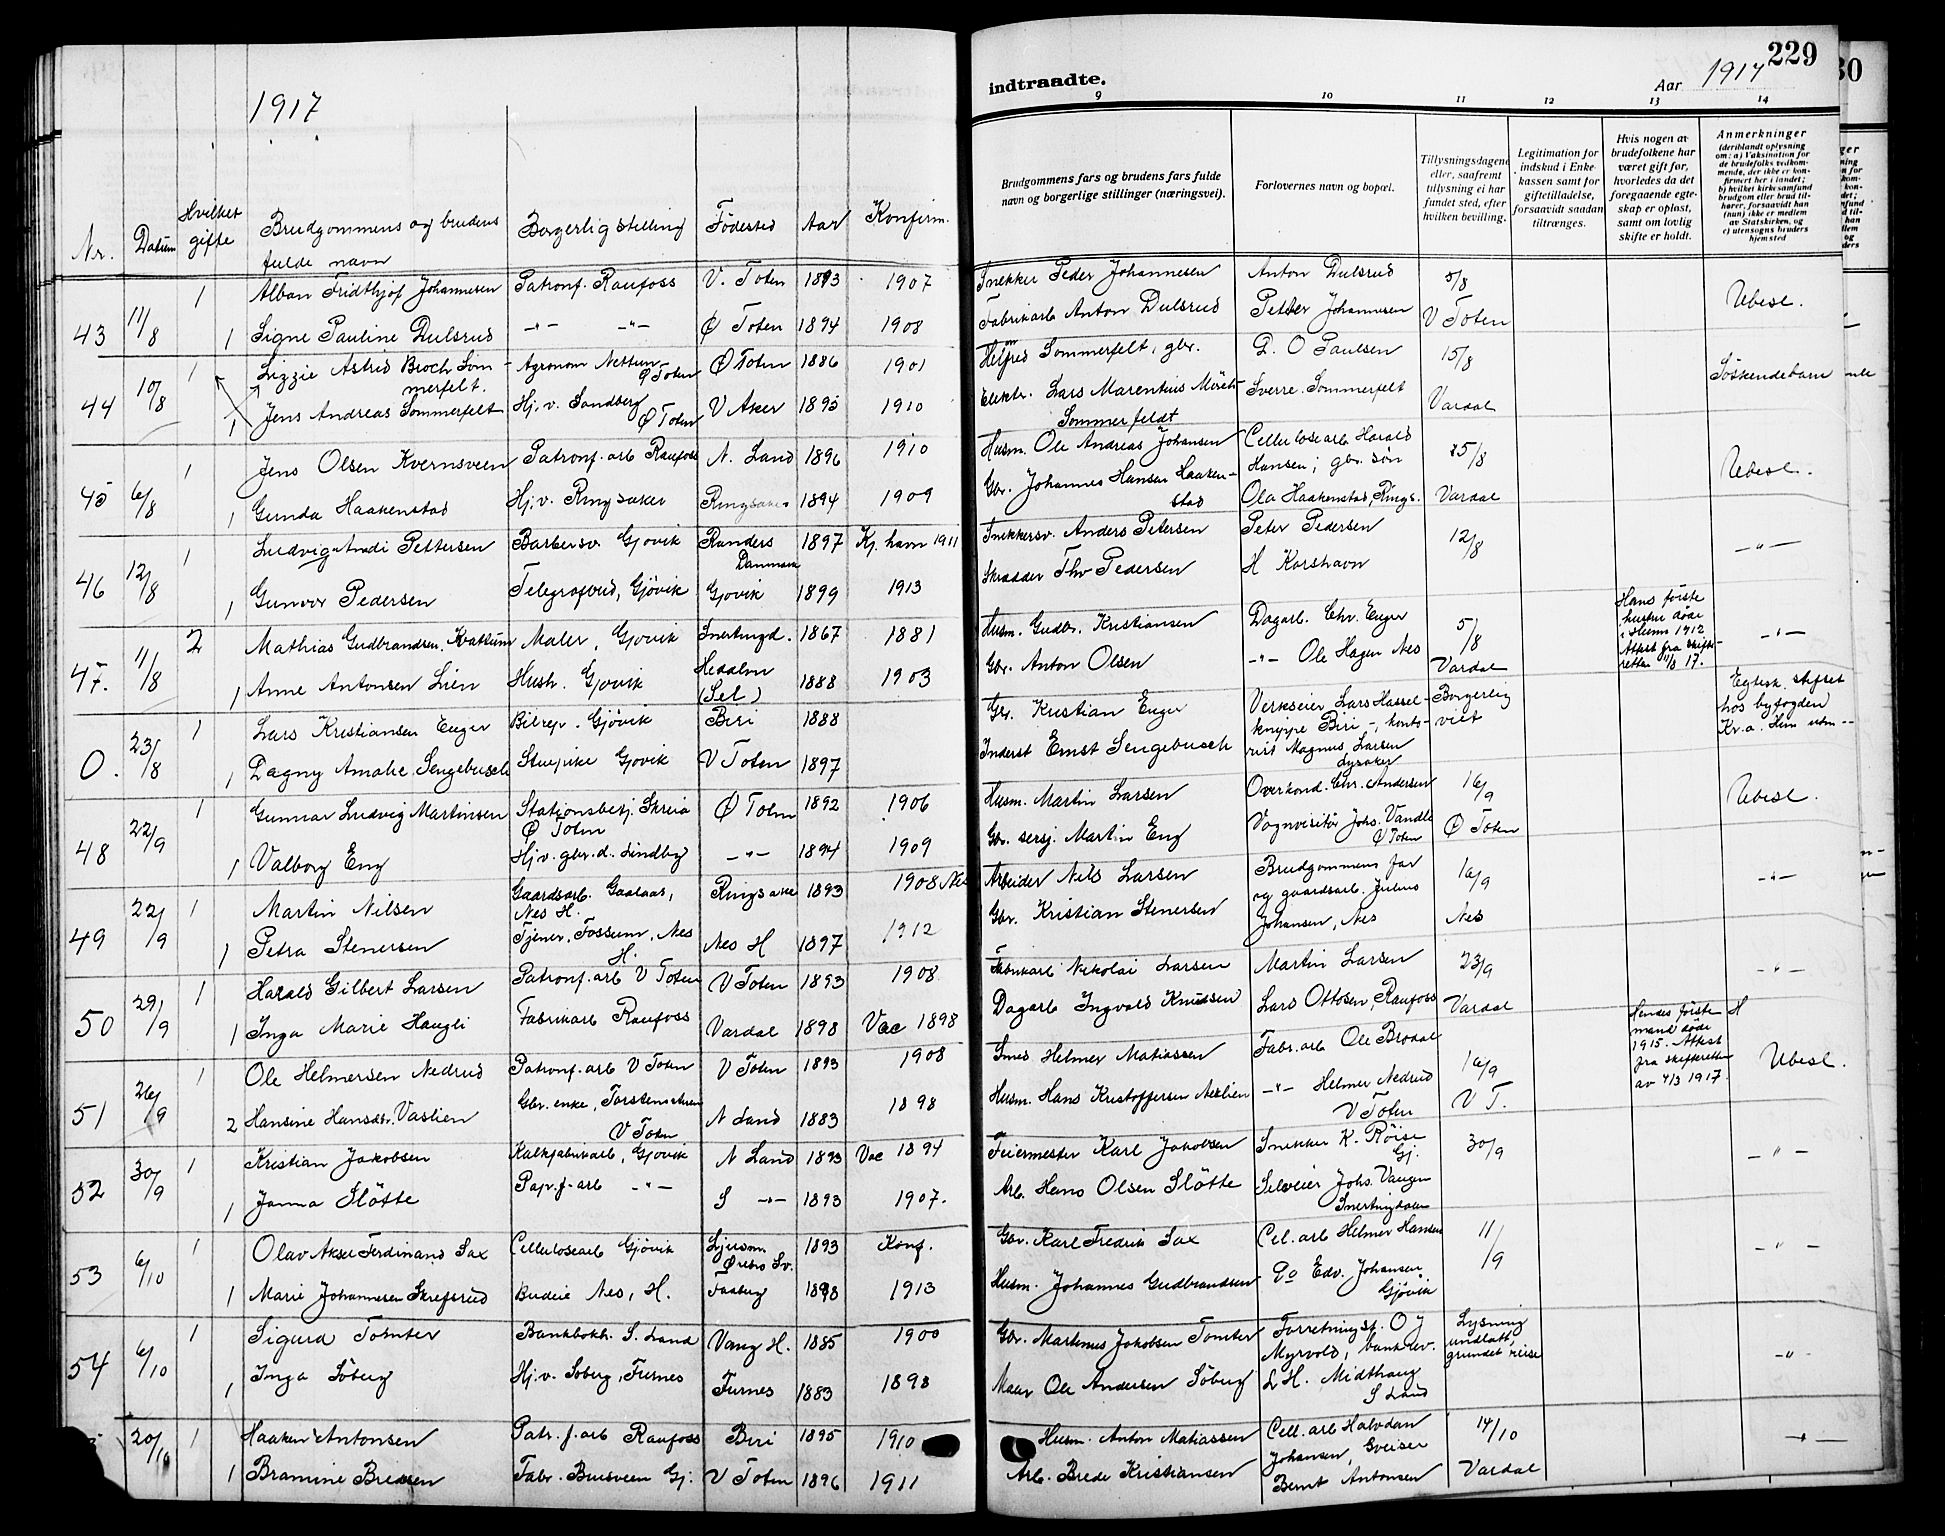 1917
Nr.
Datum
Hvilket gifte
Brudgommens og brudens fulde navn
Borgerlig stilling
Födested
Aar
Konfirm.
43 11/8 1 Alban Fridthjof Johannesen Patronf. Raufoss V. Toten 1893 1907
1 Signe Pauline Dulsrud —"— —"— Ø Toten 1894 1908
44 10/8 1 Lizzie Astrid Broch Som- Agronom Ø Toten Ø Toten 1886 1901
merfelt.
1 Jens Andreas Sommerfelt Hj. v. Sandberg Ø Toten V Aker 1895 1910
45 6/8 1 Jens Olsen Kvernsveen Patronf. arb Raufoss N. Land 1896 1910
1 Gunda Haakenstad Hj. v. Ringsaker Ringsaker 1894 1909
46 12/8 1 Ludvig Andi Pettersen Barbersv Gjøvik Randers Danmark 1897 Kj. havn 1911
1 Gunvor Pedersen Telegrafbud, Gjövik Gjovik 1899 1913
47. 11/8 2 Mathias Gudbrandsen Maler, Gjovik Snertingd. 1867 1881
1 Anne Antonsen Lien Hush. Gjovik Heddalen (Sel) 1888 1903
0. 23/8 1 Lars Kristiansen Enger Bilrep. Gjövik Biri 1888
1 Dagny Amalie Sengebusch Stuepike Gjovik V Toten 1897
48 22/9 1 Gunnar Ludvig Martinsen Stationsbetj. Skreia Ø Toten Ø Toten 1892 1906
1 Valborg Eng Hj. v. gbr. d. Lindby —"— 1894 1909
49 22/9 1 Martin Nilsen Gaardsarb. Gaalaas, Nes H. Ringsaker 1893 1908 Nes
1 Petra Stenersen Tjener, Fossum, Nes H. Nes H 1897 1912
50 29/9 1 Harald Gilbert Larsen Patronf. arb V Toten V Toten 1893 1908
1 Inga Marie Haugli Fabrikarb Raufoss Vardal 1898 Vac 1898
51 26/9 1 Ole Helmersen Nedrud Patronf. arb V Toten V Toten 1893 1908
2 Hansine Hansdtr. Vaslien Gbr. enke, V Toten N Land 1883 1898
52 30/9 1 Kristian Jakobsen Kalkfabrikarb, Gjovik N Land 1893 Vac 1894
1 Janna Slötte Pap. f. arb —"— S —"— 1893 1907.
53 6/10 1 Olav Aksel Ferdinand Sax Cellulosearb Gjøvik Örebro Sv. 1893 Konf.
1 Marie Johannesen Skrefsrud Budeie Nes, H. Faaberg 1898 1913
54 6/10 1 Sigurd Tomter Bankbokh. S. Land Vang H. 1885 1900
1 Inga Söberg Hj. v. Soberg, Furnes Furnes 1883 1898
20/10 1 Haaken Antonsen Patr. f. arb Raufoss Biri 1895 1910
1 Bramine Bredesen Fabr. Brusveen Gj. V Toten 1896 1911
indtraadte.
Aar 1917
229
30
9 10 11 12 13 14
Brudgommens fars og brudens fars fulde navn og borgerlige stillinger (næringsvei).
Forlovernes navn og bopæl.
Tillysningsdagene eller, saafremt tillysning ei har fundet sted, efter hvilken bevilling.
Legitimation for indskud i Enkekassen samt for giftetilladelse, forsaavidt saadan tiltrænges.
Hvis nogen av brudefolkene har været gift før, hvorledes da det foregaaende egteskap er opløst, samt om lovlig skifte er holdt.
Anmerkninger (deriblandt oplysning om: a) Vaksination for de brudefolks vedkommende, der ikke er konfirmert her i landet; b) hvilket kirkesamfund brudgom eller brud tilhører, forsaavidt han (hun) ikke er medlem av Statskirken, og c) utensogns bruders hjemsted
Snekker Peder Johannesen Anton Dulsrud 5/8 Ubesl.
Fabrikarb Anton Dulsrud Petter Johannesen V Toten
Sommerfelt, gbr. P. O Paulsen 15/8 Söskendebarn
Elektr. Lars Marentius Sommerfeldt Sverre Sommerfelt Vardal
Husm. Ole Andreas Johansen Cellulosearb Harald Hansen; gbr. søn 25/8 Ubesl.
Gbr. Johannes Hansen Haakenstad Ola Haakenstad, Rings. Vardal
Snekkersv. Anders Petersen Peter Pedersen 12/8 —"—
Skrædder Thv Pedersen H Korshavn
Husm. Gudbr. Kristiansen Dagarb. Chr. Enger 5/8 Hans første hustru döde 1912 Attest fra skifteretten 11/8 17. —"—
Gbr. Anton Olsen —"— Ole Hagen Nes Vardal
Gbr. Kristian Enger Verkseier Lars Hasselknippe Biri —, kontorist Magnus Larsen Lysaker Borgerlig viet Egtesk. stiftet hos byfogden Kr.a.
Inderst Ernst Sengebusch
Husm. Martin Larsen Overkond. Chr. Andersen 16/9 Ubesl.
Gbr. sersj. Martin Eng Vognvisitör Johs. Vandle Ø Toten Ø Toten
Arbeider Nils Larsen Brudgommens far og gaardsarb. Julius Johansen, Nes 16/9 —"—
Gbr. Kristian Stenersen Nes
Fabrikarb Nikolai Larsen Martin Larsen 23/9 —"—
Dagarb Ingvald Knudsen Lars Ottosen, Raufoss Vardal
Smed Helmer Matiassen Fabr. arb Ole Brodal 16/9 Hendes første mand döde 1915. Attest fra skifteretten av 4/3 1917. H Ubesl.
Husm. Hans Kristoffersen —"— Helmer Nedrud V Toten V T.
Feiermester Karl Jakobsen Snekker K. Röise Gj. 30/9 —"—
Arb. Hans Olsen Slötte Selveier Johs. Vangen Snertingdalen
Gbr. Karl Fredrik Sax Cel. arb Helmer Hansen 11/9 —"—
Husm. Johannes Gudbrandsen Do Edv. Johansen Gjövik
Gbr. Martinus Jakobsen Tomter Forretningsf. O J Myrvold, Lysning undlatt, grundet reise —"—
Maler Ole Andersen Söberg L H. Midthaug S Land
Husm. Anton Matiassen Cell. arb Halvdan Johansen, 14/10 —"—
Arb. Brede Kristiansen Bernt Antonsen Vardal